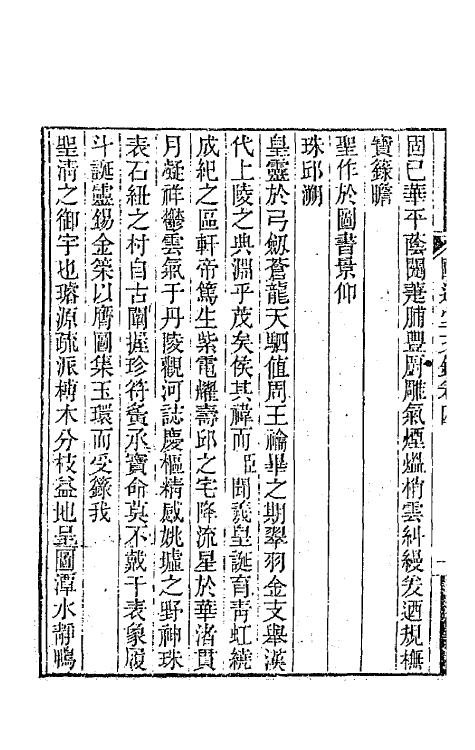 固已華平蔭闥萐脯豐廚雕氣煙熅梢雲糾縵爰迺規橅
寶籙瞻
聖作於圖書景仰
珠邱溯
皇靈於弓劔蒼龍天駟値周王禴畢之期翠羽金支舉漢
代上陵之典淵乎茂矣侯其禕而臣聞羲皇誕育靑虹繞
成紀之區軒帝篤生紫電耀壽邱之宅降流星於華渚貫
月凝祥鬱雲氣于丹陵觀河誌慶樞精感姚墟之野神珠
表石紐之村自古闡握珍符寅承寶命莫不戴干表象履
斗誕靈錫金策以膺圖集玉環而受籙我
聖淸之御宇也璿源疏派榑木分枝益地呈圖潭水靜鴨